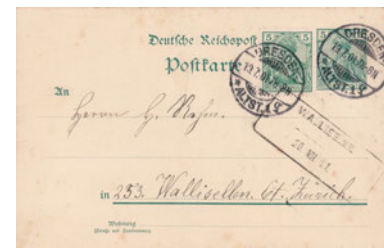 Deutsche Reichspost
5 5 5
Postkarte
DRESDEN-
ALTST. 1
DRESDEN-
ALTST. 1
An
Herrn H.
in 253. Wallisellen. Ct. Zürich.
Wohnung
(Straße und Hausnummer)